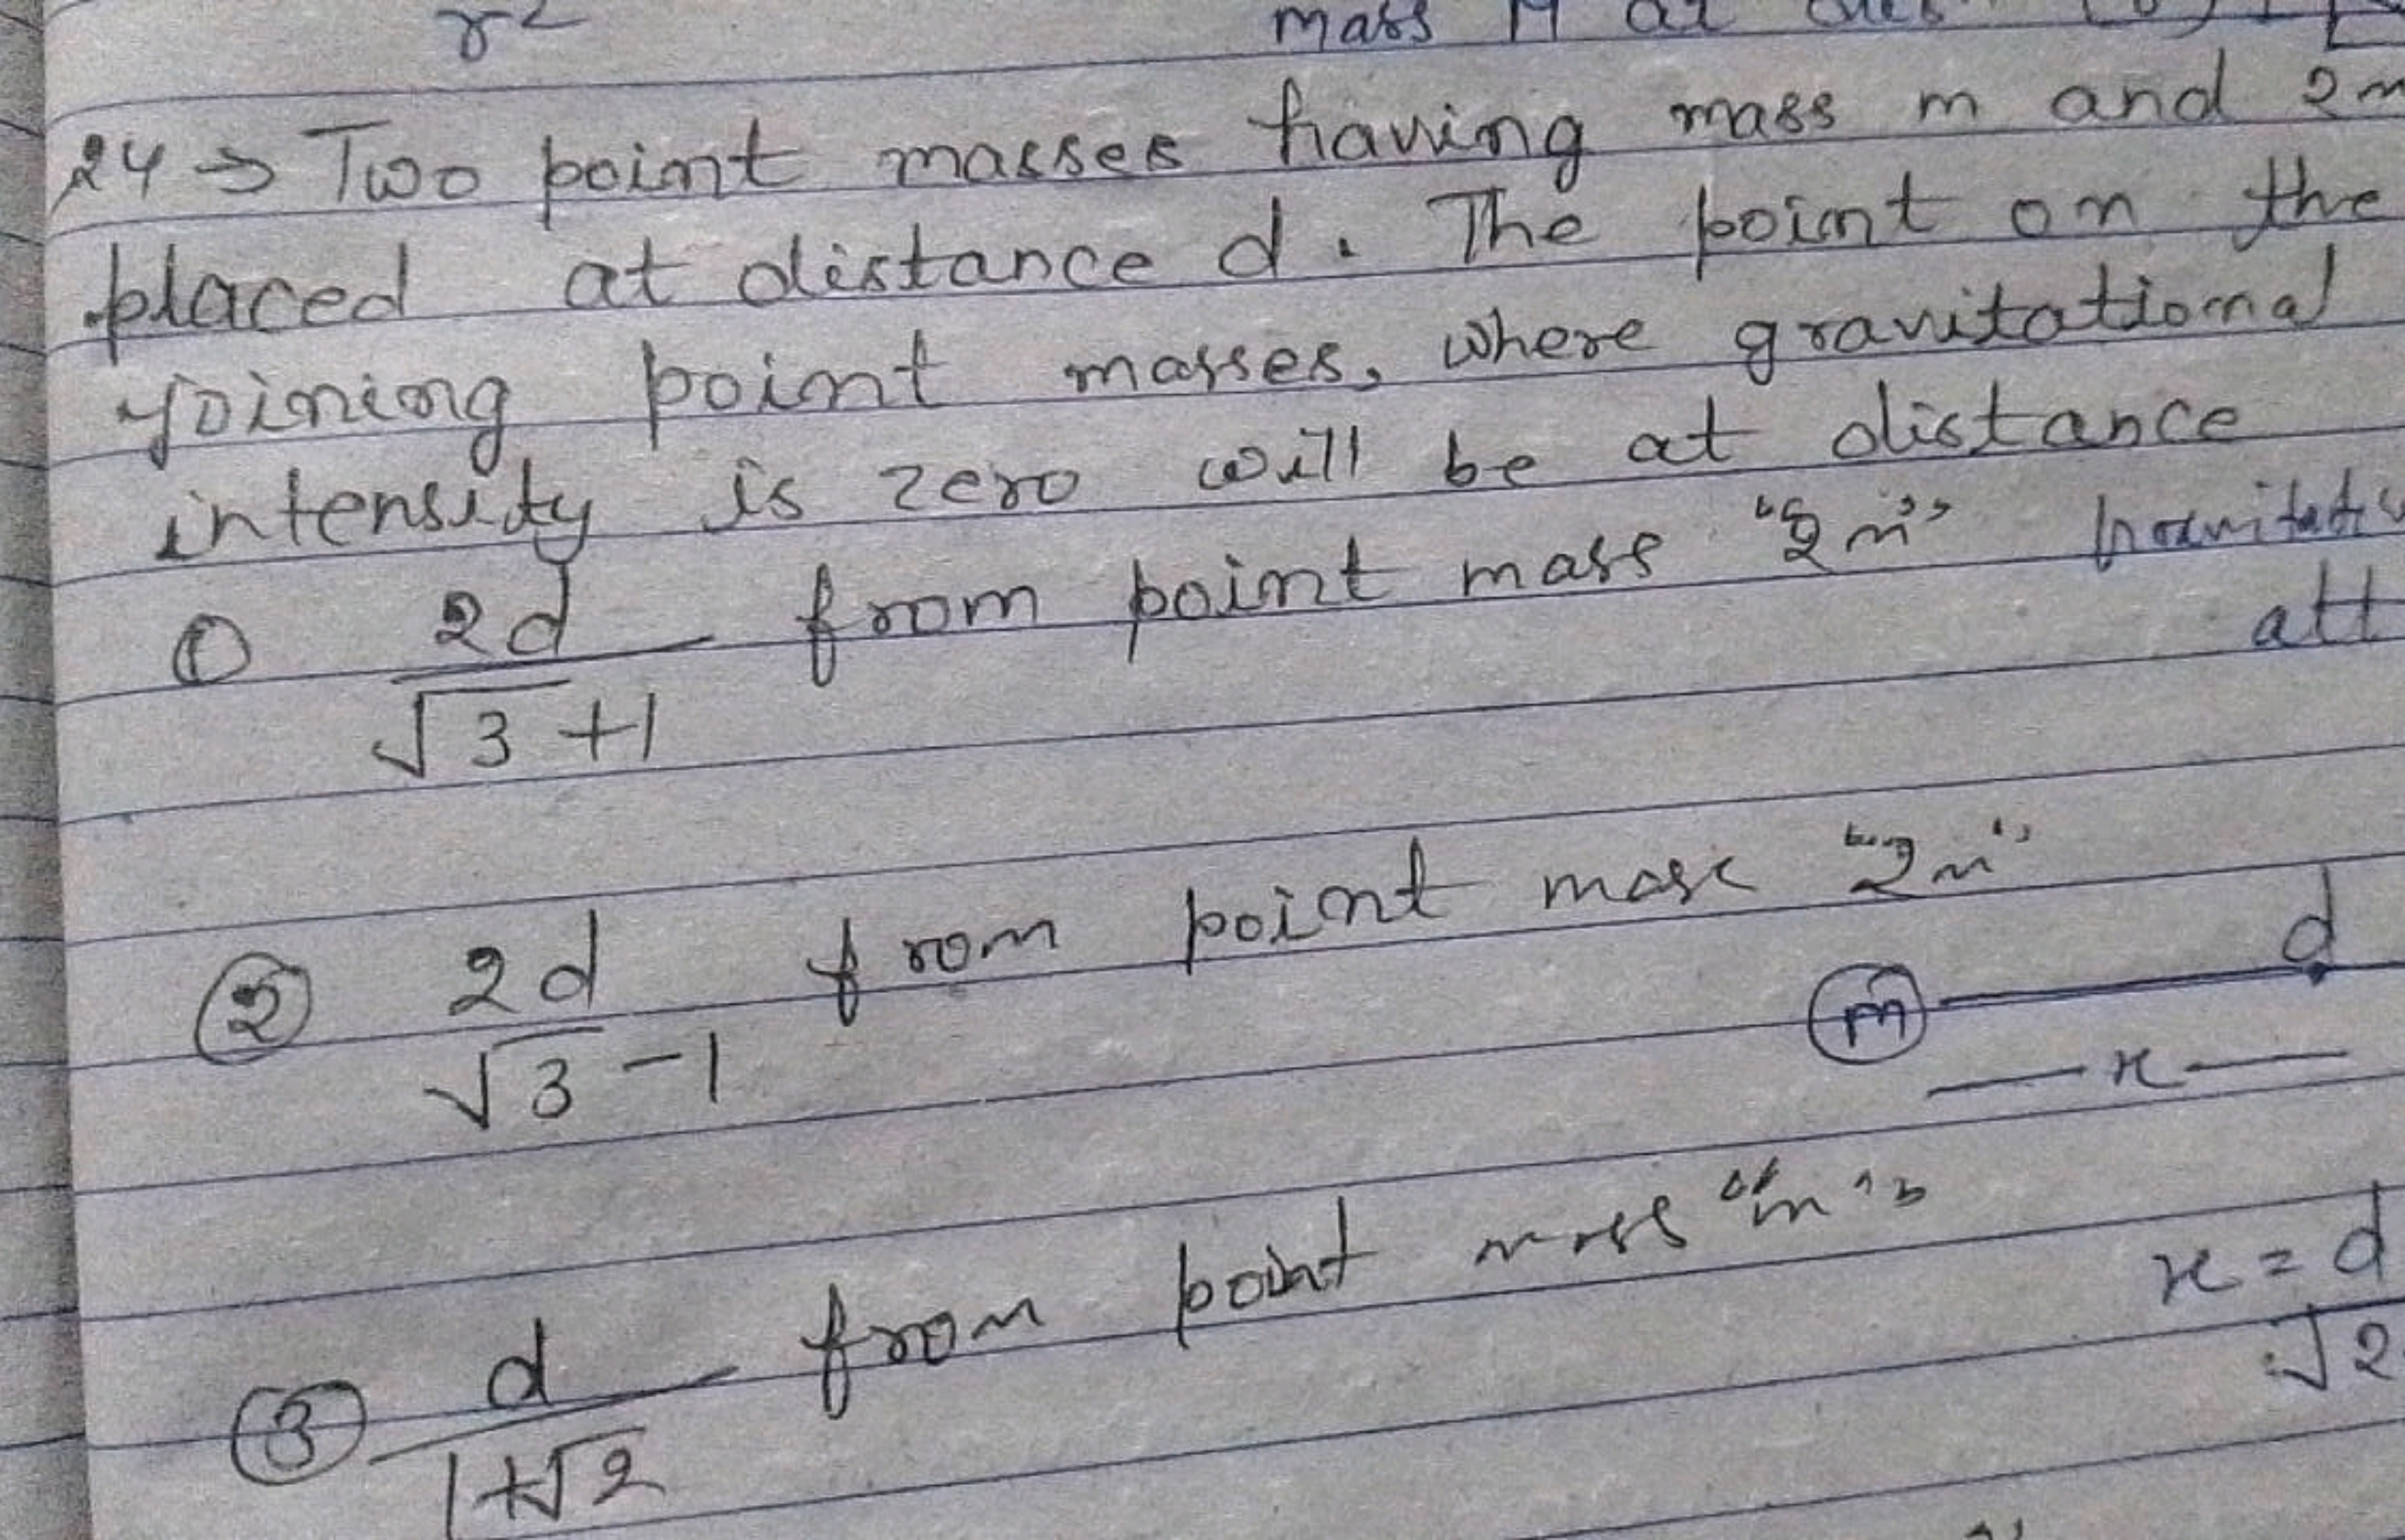 r²
mass M at
24 → Two point masses having mass m and 2m
placed at distance d. The point on the
joining point masses, where gravitational
intensity is zero will be at distance
① 2d/√3+1 from point mass "2m"
att
② 2d/√3-1 from point mass "2m"
m d
x
③ d/1+√2 from point mass "m"
x = d
√2